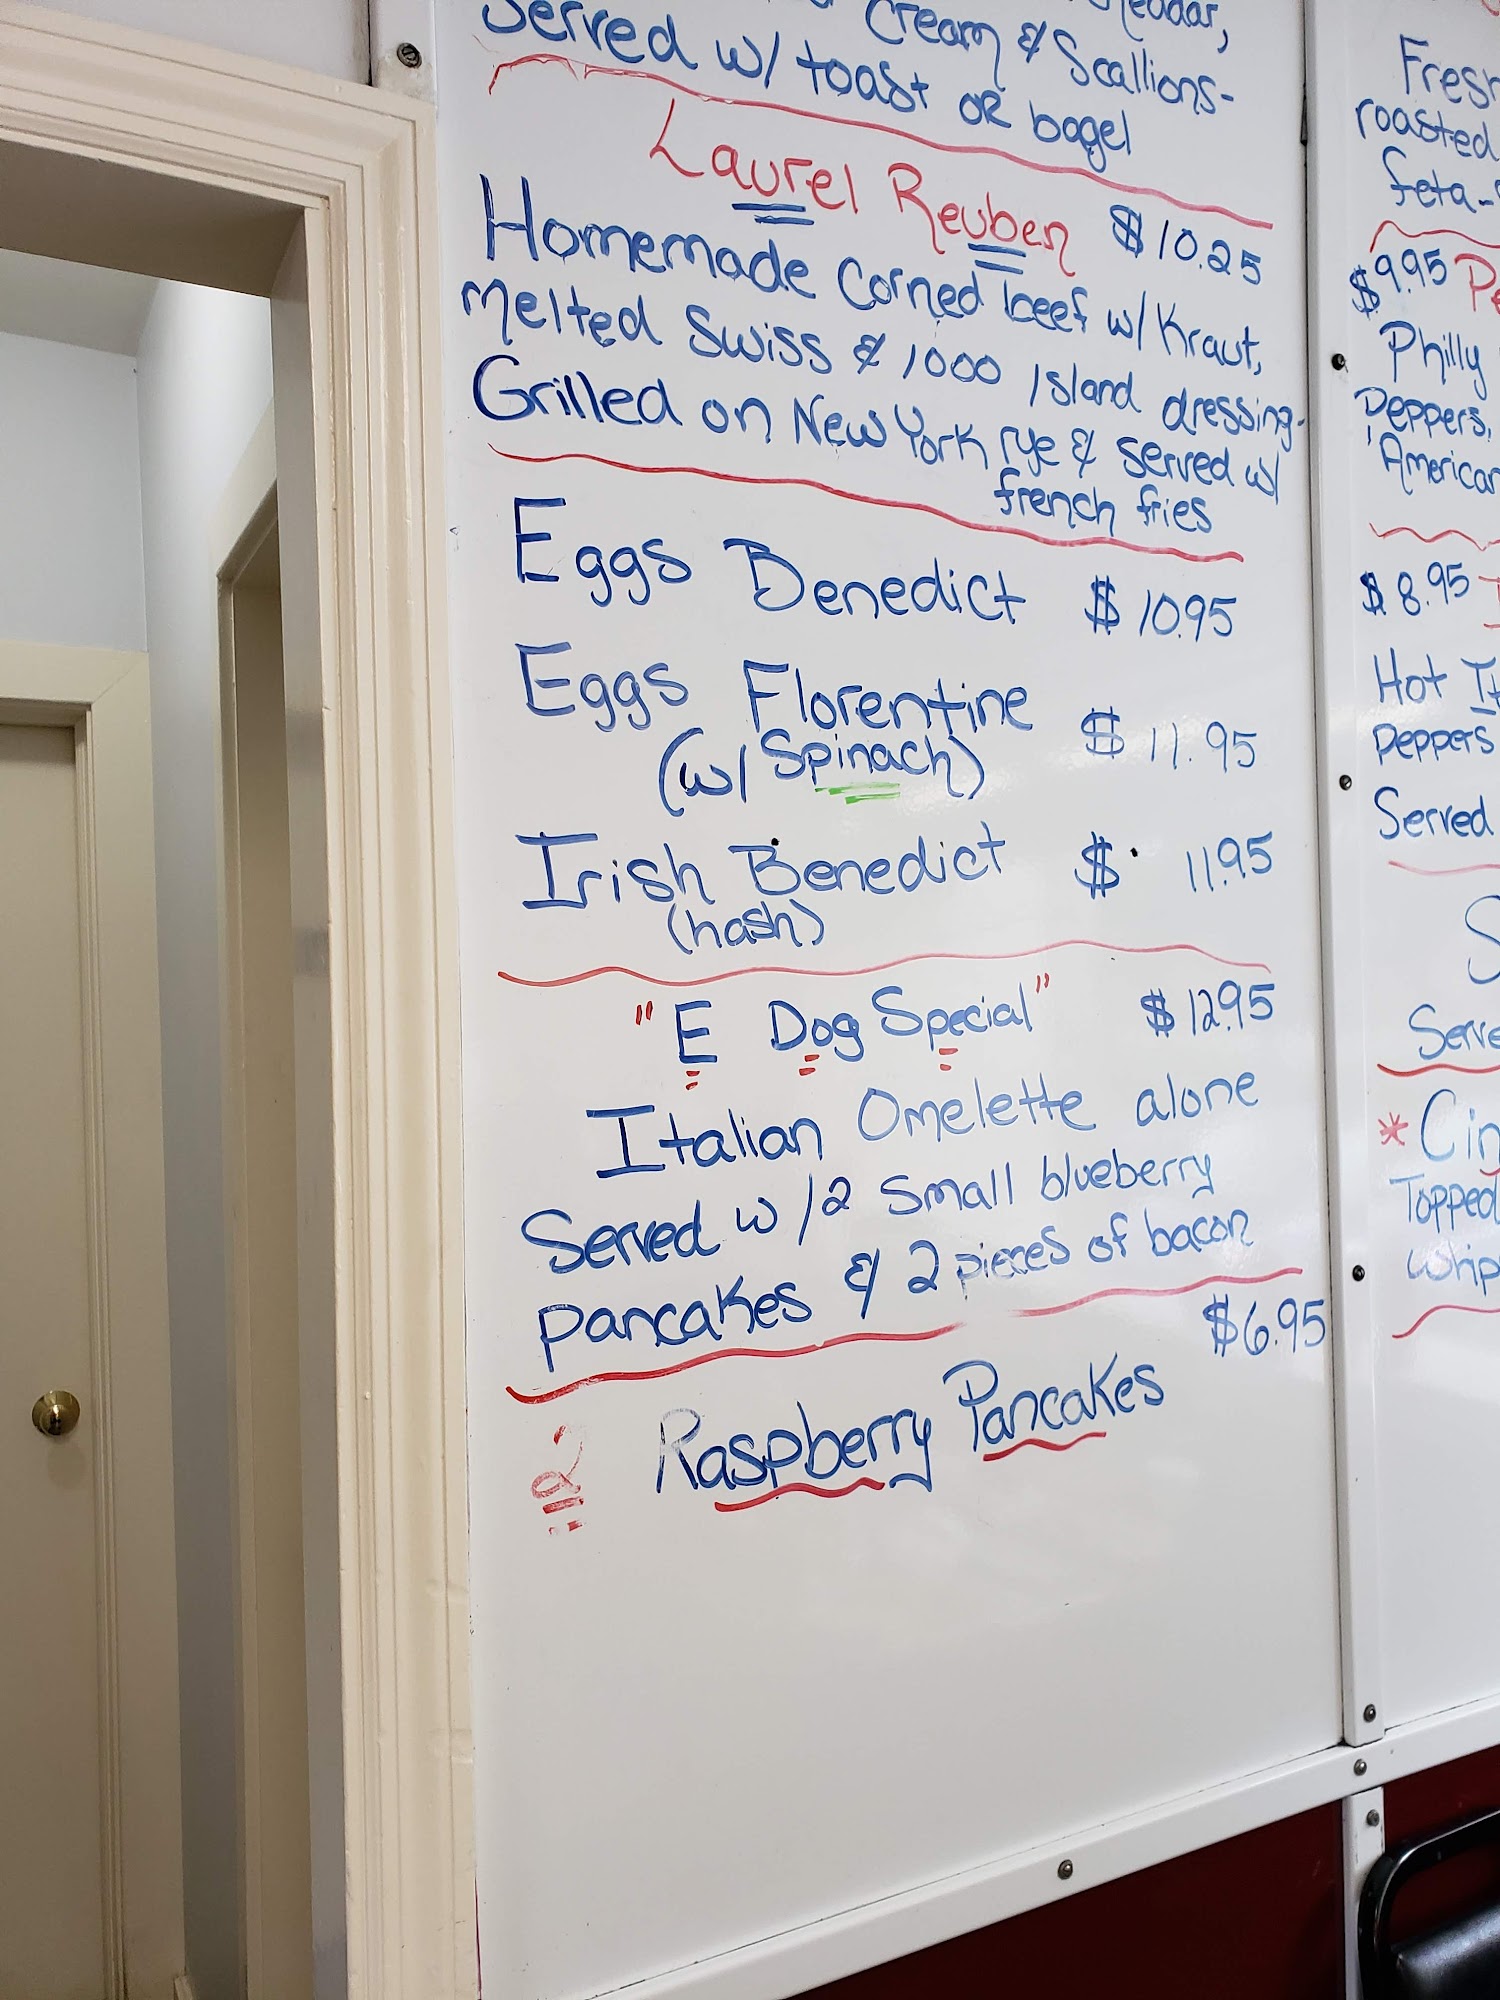 Cheddar,
Cream & Scallions-
Served w/ toast OR bagel
Laurel Reuben $10.25
Homemade Corned beef w/ Kraut,
Melted Swiss & 1000 Island dressing-
Grilled on New York rye & served w/
french fries
Eggs Benedict $10.95
Eggs Florentine $11.95
(w/ Spinach)
Irish Benedict $11.95
(hash)
"E Dog Special" $12.95
Italian Omelette alone
Served w/2 small blueberry
pancakes & 2 pieces of bacon
$6.95
Raspberry Pancakes
Fresh
roasted
feta-
$9.95
Philly
Peppers,
American
$8.95
Hot
peppers
Served
Serve
* Cin
Topped
whip